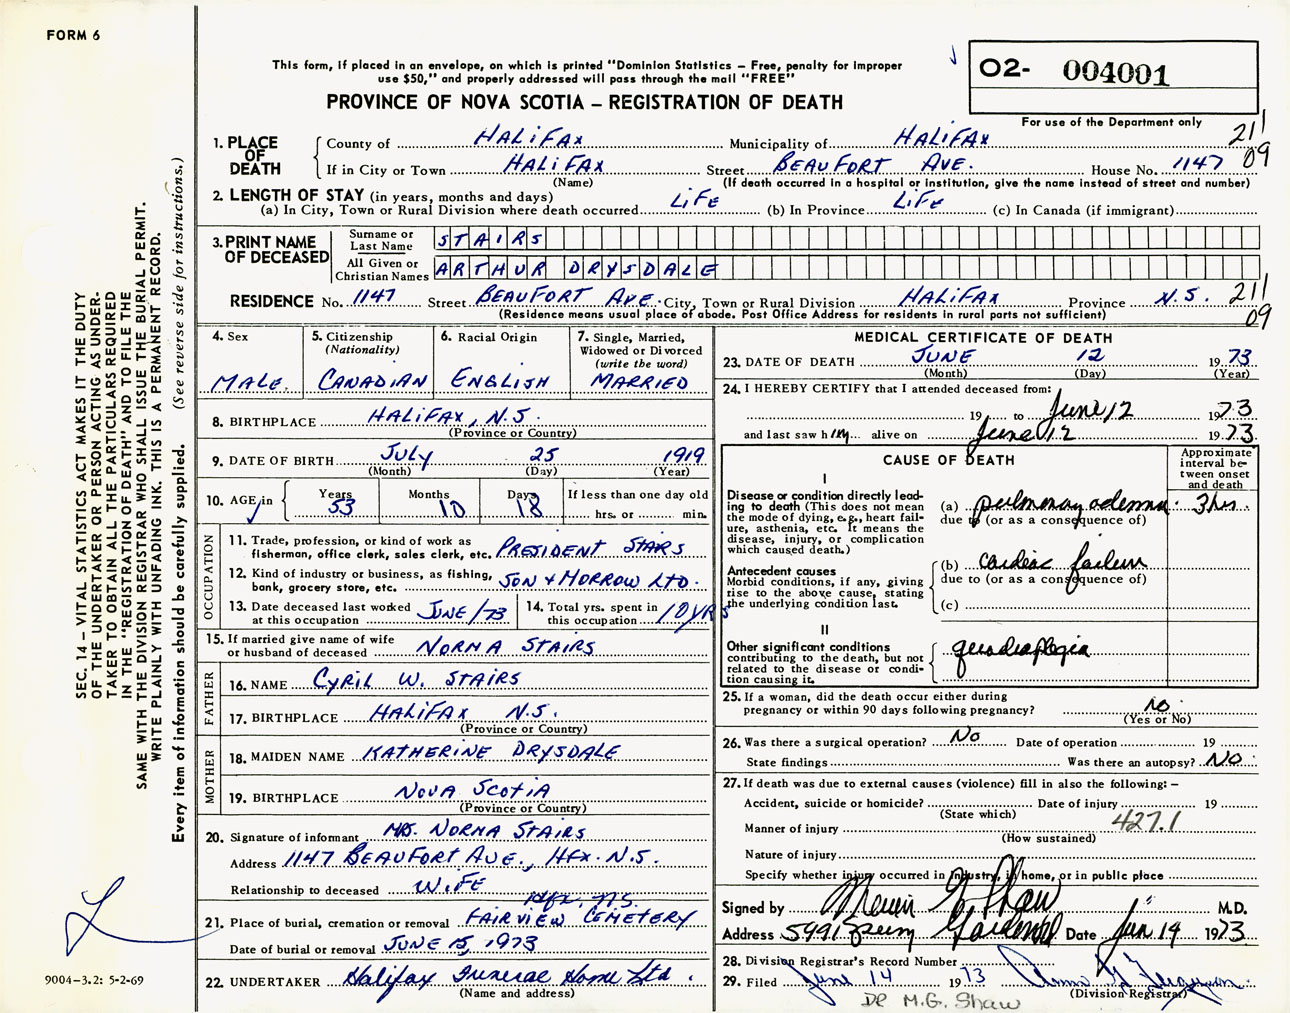 FORM 6
This form, if placed in an envelope, on which is printed "Dominion Statistics – Free, penalty for improper
use $50," and properly addressed will pass through the mail "FREE"
PROVINCE OF NOVA SCOTIA – REGISTRATION OF DEATH
O2- 004001
For use of the Department only
1. PLACE OF DEATH
County of HALIFAX Municipality of HALIFAX 211
If in City or Town HALIFAX Street BEAUFORT AVE. House No. 1147 09
(Name) (If death occurred in a hospital or institution, give the name instead of street and number)
2. LENGTH OF STAY (in years, months and days)
(a) In City, Town or Rural Division where death occurred LIFE (b) In Province LIFE (c) In Canada (if immigrant)
3. PRINT NAME OF DECEASED
Surname or Last Name STAIRS
All Given or Christian Names ARTHUR DRYSDALE
RESIDENCE No. 1147 Street BEAUFORT AVE. City, Town or Rural Division HALIFAX Province N.S. 211
(Residence means usual place of abode. Post Office Address for residents in rural parts not sufficient) 09
4. Sex
MALE.
5. Citizenship
(Nationality)
CANADIAN
6. Racial Origin
ENGLISH
7. Single, Married,
Widowed or Divorced
(write the word)
MARRIED
8. BIRTHPLACE HALIFAX, N.S.
(Province or Country)
9. DATE OF BIRTH JULY 25 1919
(Month) (Day) (Year)
10. AGE in Years 53 Months 10 Days 18 If less than one day old
hrs. or min.
OCCUPATION
11. Trade, profession, or kind of work as
fisherman, office clerk, sales clerk, etc. PRESIDENT STAIRS
12. Kind of industry or business, as fishing,
bank, grocery store, etc. SON & MORROW LTD.
13. Date deceased last worked
at this occupation JUNE/73
14. Total yrs. spent in
this occupation 10 YRS
15. If married give name of wife
or husband of deceased NORMA STAIRS
FATHER
16. NAME CYRIL W. STAIRS
17. BIRTHPLACE HALIFAX N.S.
(Province or Country)
MOTHER
18. MAIDEN NAME KATHERINE DRYSDALE
19. BIRTHPLACE NOVA SCOTIA
(Province or Country)
20. Signature of informant MRS. NORMA STAIRS
Address 1147 BEAUFORT AVE., HFX. N.S.
Relationship to deceased WIFE
Hfx. N.S.
21. Place of burial, cremation or removal FAIRVIEW CEMETERY
Date of burial or removal JUNE 15, 1973
22. UNDERTAKER Halifax Funeral Home Ltd.
(Name and address)
MEDICAL CERTIFICATE OF DEATH
23. DATE OF DEATH JUNE 12 1973
(Month) (Day) (Year)
24. I HEREBY CERTIFY that I attended deceased from:
19 to June 12 1973
and last saw him alive on June 12 1973
CAUSE OF DEATH
Approximate
interval be-
tween onset
and death
I
Disease or condition directly lead-
ing to death (This does not mean
the mode of dying, e.g., heart fail-
ure, asthenia, etc. It means the
disease, injury, or complication
which caused death.)
(a) pulmonary edema. 3 hrs.
due to (or as a consequence of)
Antecedent causes
Morbid conditions, if any, giving
rise to the above cause, stating
the underlying condition last.
(b) cardiac failure
due to (or as a consequence of)
(c)
II
Other significant conditions
contributing to the death, but not
related to the disease or condi-
tion causing it.
quadraplegia
25. If a woman, did the death occur either during
pregnancy or within 90 days following pregnancy? No
(Yes or No)
26. Was there a surgical operation? No Date of operation 19
State findings Was there an autopsy? No
27. If death was due to external causes (violence) fill in also the following: –
Accident, suicide or homicide? Date of injury 19
(State which)
427.1
Manner of injury
(How sustained)
Nature of injury
Specify whether injury occurred in industry, in home, or in public place
Signed by G. Shaw M.D.
Address 5991 Spring Garden Rd Date Jun 14 1973
28. Division Registrar's Record Number
29. Filed June 14 1973
(Division Registrar)
DR M.G. Shaw
SEC. 14 – VITAL STATISTICS ACT MAKES IT THE DUTY
OF THE UNDERTAKER OR PERSON ACTING AS UNDER-
TAKER TO OBTAIN ALL THE PARTICULARS REQUIRED
IN THE "REGISTRATION OF DEATH" AND TO FILE THE
SAME WITH THE DIVISION REGISTRAR WHO SHALL ISSUE THE BURIAL PERMIT.
WRITE PLAINLY WITH UNFADING INK. THIS IS A PERMANENT RECORD.
Every item of information should be carefully supplied. (See reverse side for instructions.)
9004-3.2: 5-2-69